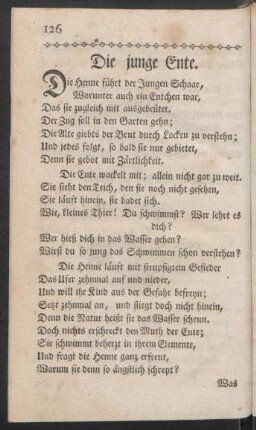 126
Die junge Ente.
Die Henne führt der Jungen Schaar,
Worunter auch ein Entchen war,
Das sie zugleich mit ausgebrütet.
Der Zug soll in den Garten gehn;
Die Alte giebts der Brut durch Locken zu verstehn;
Und jedes folgt, so bald sie nur gebietet,
Denn sie gebot mit Zärtlichkeit.
Die Ente wackelt mit; allein nicht gar zu weit.
Sie sieht den Teich, den sie noch nicht gesehen,
Sie läuft hinein, sie badet sich.
Wie, kleines Thier! Du schwimmst? Wer lehrt es
dich?
Wer hieß dich in das Wasser gehen?
Wirst du so jung das Schwimmen schon verstehen?
Die Henne läuft mit strupfigtem Gefieder
Das Ufer zehnmal auf und nieder,
Und will ihr Kind aus der Gefahr befreyn;
Setzt zehnmal an, und fliegt doch nicht hinein,
Denn die Natur heißt sie das Wasser scheun.
Doch nichts erschreckt den Muth der Ente;
Sie schwimmt beherzt in ihrem Elemente,
Und fragt die Henne ganz erfreut,
Warum sie denn so ängstlich schreyt?
Was